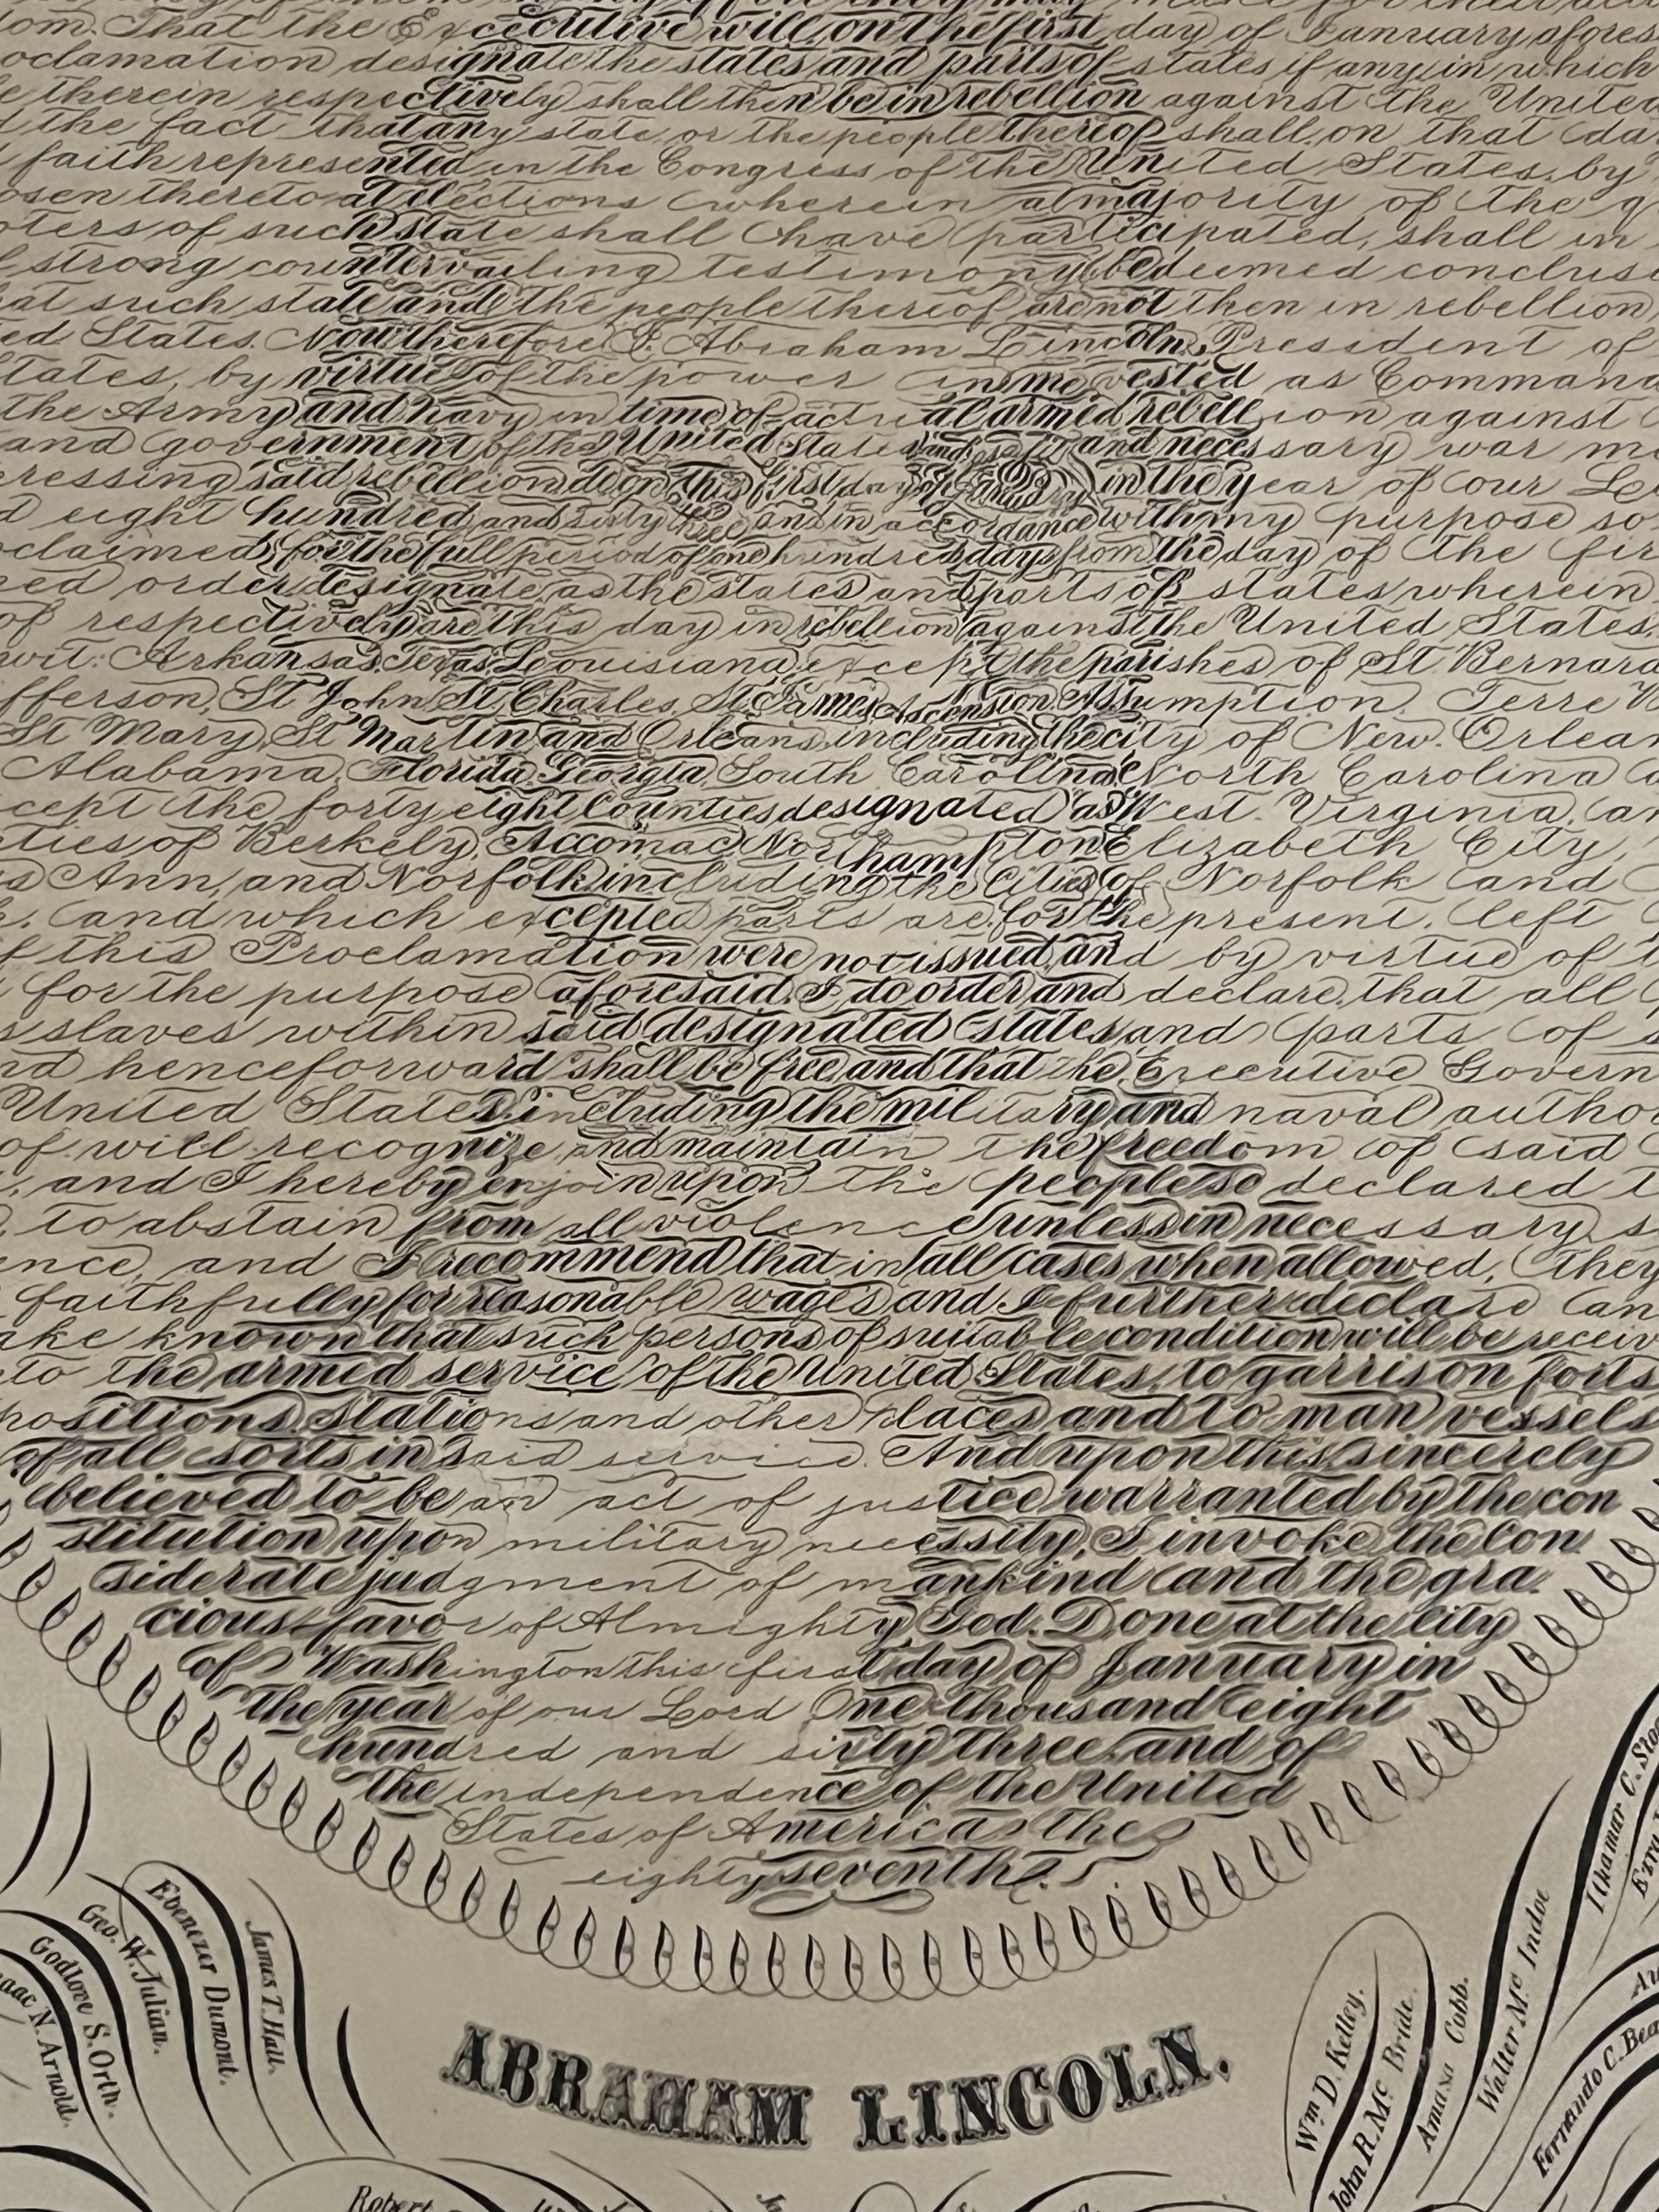 cecutive will on the first day of January afores
oclamation designate the states and parts of states if any in which
e therein respectively shall then be in rebellion against the United
d the fact that any state or the people thereof shall on that da
faith represented in the Congress of the United States, by
osen thereto at elections wherein a majority of the q
oters of such state shall have participated, shall in
f strong countervailing testimony be deemed conclusi
hat such state and the people thereof are not then in rebellion
ed States. Now therefore I, Abraham Lincoln, President of
tates, by virtue of the power in me vested as Command
the Army and Navy in time of actual armed rebellion against
and government of the United States and as a fit and necessary war me
ressing said rebellion do on this first day of January in the year of our Lo
d eight hundred and sixty three and in accordance with my purpose so
claimed for the full period of one hundred days from the day of the fir
ned order designate as the states and parts of states wherein
of respectively are this day in rebellion against the United States,
wit: Arkansas, Texas, Louisiana, except the parishes of St Bernard
fferson, St John, St Charles, St James, Ascension, Assumption, Terre B
St Mary, St Martin and Orleans, including the city of New Orlean
Alabama, Florida, Georgia, South Carolina, North Carolina a
cept the forty eight Counties designated as West Virginia, an
ties of Berkely, Accomac, Northampton, Elizabeth City,
s Ann, and Norfolk including the Cities of Norfolk and
h, and which excepted parts are for the present, left
f this Proclamation were not issued, and by virtue of t
for the purpose aforesaid, I do order and declare, that all
s slaves within said designated states, and parts of s
nd henceforward shall be free, and that the Executive Govern
United States, including the military and naval author
of will recognize and maintain the freedom of said
, and I hereby enjoin upon the people so declared t
, to abstain from all violence unless in necessary s
ence, and I recommend that in all cases when allowed, they
faithfully for reasonable wages and I further declare an
ake known that such persons of suitable condition will be receiv
to the armed service of the United States, to garrison forts
positions, stations and other places, and to man vessels
of all sorts in said service. And upon this sincerely
believed to be an act of justice warranted by the con
stitution upon military necessity, I invoke the Con
siderate judgment of mankind and the gra
cious favor of Almighty God. Done at the city
of Washington this first day of January in
the year of our Lord One thousand eight
hundred and sixty three, and of
the independence of the United
States of America the
eighty seventh.
ABRAHAM LINCOLN.
James T. Hall.
Ebenezer Dumont.
Geo. W. Julian.
Godlove S. Orth.
aac N. Arnold.
Robert
Wm D. Kelley.
John R. Mc Bride.
Amasa Cobb.
Walter Mc Indoe
Ithamar C. Sloa
Ezra
Fernando C. Bea